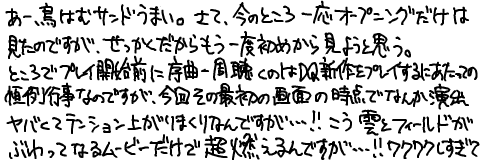 あー、鳥はむサンドうまい。さて、今のところ一応オープニングだけは
見たのですが、せっかくだからもう一度初めから見ようと思う。
ところでプレイ開始前に序曲一周聴くのはDQ新作をプレイするにあたっての
恒例行事なのですが、今回その最初の画面の時点でなんか演出
ヤバくてテンション上がりまくりなんですが…!!こう雲とフィールドが
ぶわってなるムービーだけで超燃えるんですが…!!ワクワクしすぎて